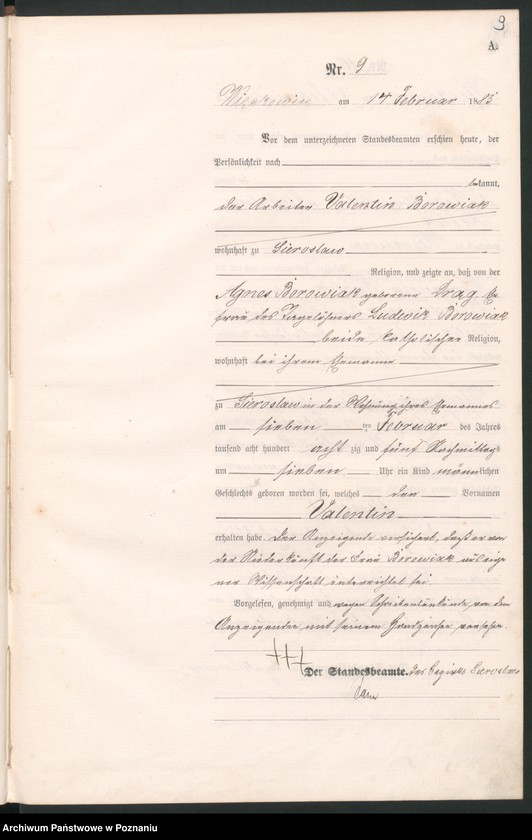 9
A.
Nr. 9
am 14 Februar 1885
Vor dem unterzeichneten Standesbeamten erschien heute, der
Persönlichkeit nach
bekannt,
der Arbeiter Valentin Borowiak
wohnhaft zu Sieroslaw
Religion, und zeigte an, daß von der
Agnes Borowiak geborene Drag, Ehe
frau des Tagelöhners Ludwik Borowiak
beide katholischer Religion,
wohnhaft bei ihrem Ehemanne
zu Sieroslaw in der Wohnung ihres Ehemannes
am sieben ten Februar des Jahres
tausend acht hundert acht zig und fünf Nachmittags
um sieben Uhr ein Kind männlichen
Geschlechts geboren worden sei, welches den Vornamen
Valentin
erhalten habe. Der Anzeigende versichert, daß er von
der Niederkunft der Frau Borowiak aus eige
ner Wissenschaft unterrichtet sei
Vorgelesen, genehmigt und wegen Schreibensunkunde von dem
Anzeigenden mit seinem Handzeichen versehen.
+++
Der Standesbeamte. des Bezirks Sieroslaw
Archiwum Państwowe w Poznaniu